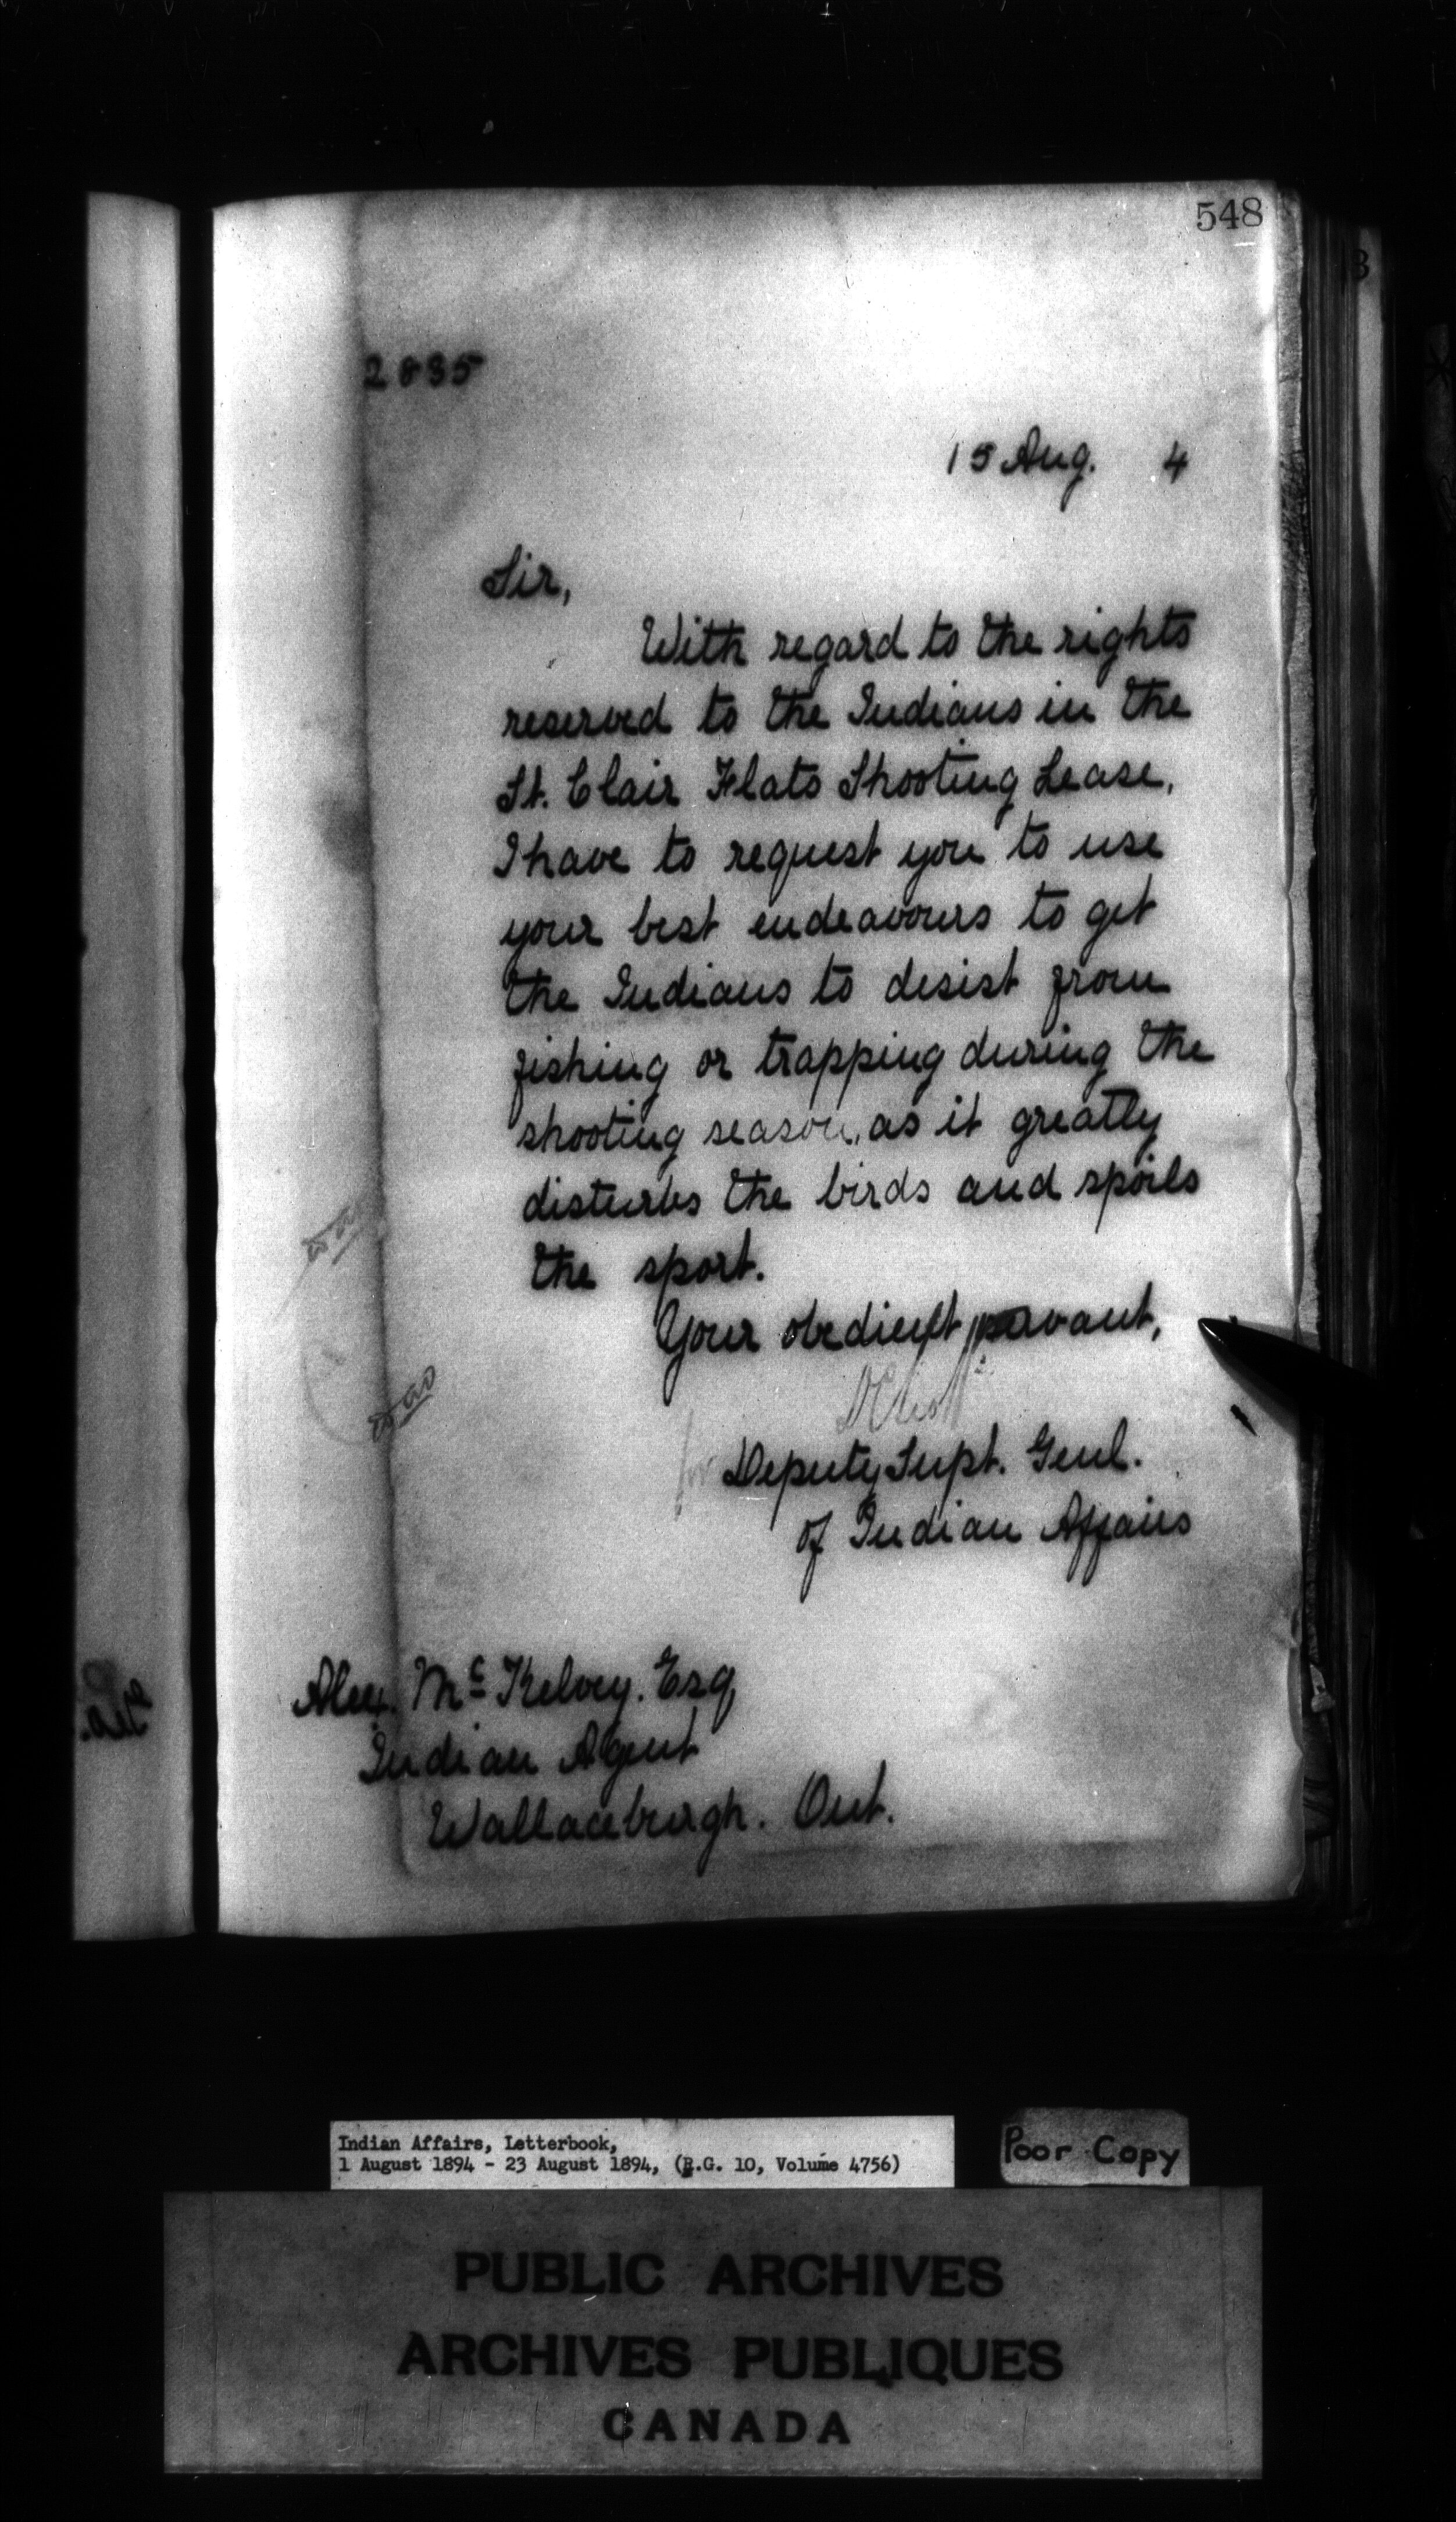 548
2835
15 Aug. 4
Sir,
With regard to the rights
reserved to the Indians in the
St. Clair Flats Shooting Lease,
I have to request you to use
your best endeavours to get
the Indians to desist from
fishing or trapping during the
shooting season, as it greatly
disturbs the birds and spoils
the sport.
Your obedient servant,
for Deputy Supt. Genl.
of Indian Affairs
Alex. Mc Kelvey. Esq
Indian Agent
Wallaceburgh. Ont.
Indian Affairs, Letterbook,
1 August 1894 - 23 August 1894, (R.G. 10, Volume 4756)
Poor Copy
PUBLIC ARCHIVES
ARCHIVES PUBLIQUES
CANADA